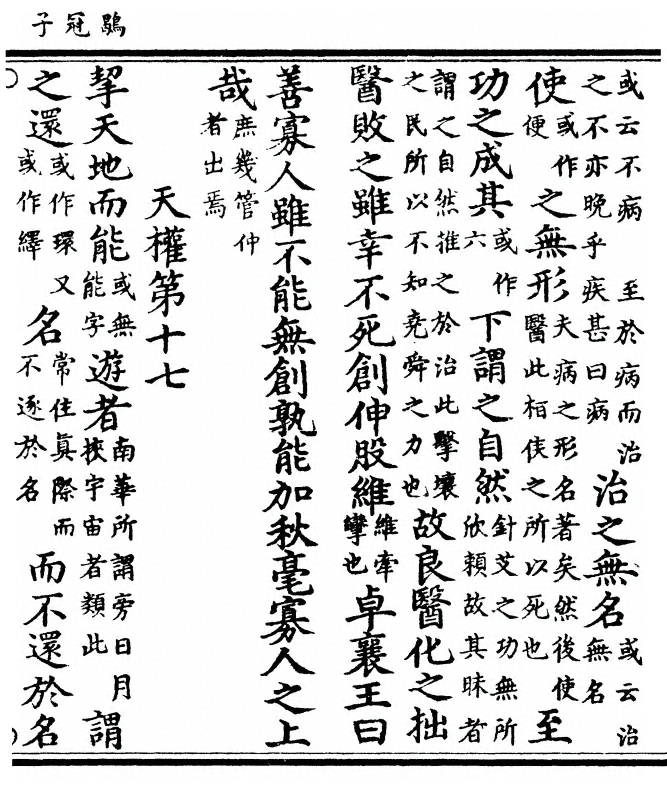 鶡冠子
或云不病　至於病而治之不亦晚乎疾甚曰病治之無名或云治無名
使或作便之無形夫病之形名著矣然後使醫此桓侯之所以死也至
功之成其或作六下謂之自然針艾之功無所欣賴故其昧者
謂之自然推之於治此擊壤之民所以不知堯舜之力也故良醫化之拙
醫敗之雖幸不死創伸股維維牽攣也卓襄王曰
善寡人雖不能無創孰能加秋毫寡人之上
哉庶幾管仲者出焉
天權第十七
挈天地而能或無能字遊者南華所謂旁日月挾宇宙者類此謂
之還或作環又或作繹名常住眞際而不逐於名而不還於名